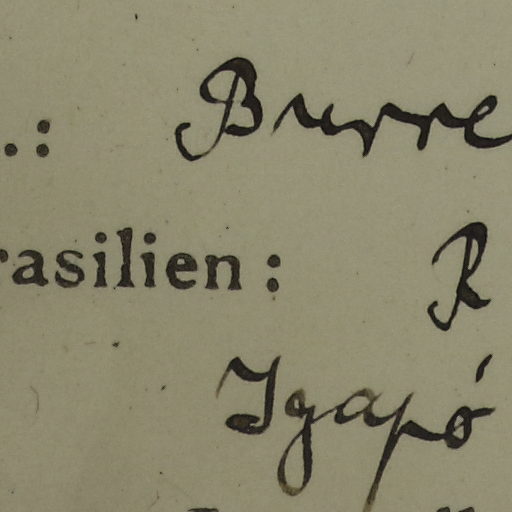 .: Burre
rasilien: R
Igapó